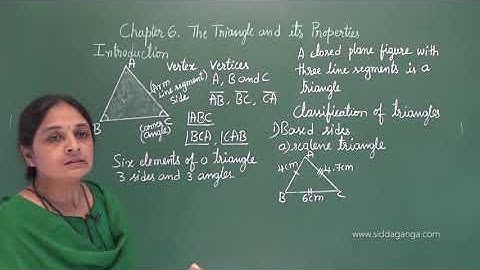 Chapter 6. The Triangle and its Properties
Introduction
A
B
C
Vertex
(rm
Line segment)
Side
(corner)
(angle)
Vertices
A, B and C
A̅B̅, B̅C̅, C̅A̅
∠ABC
∠BCA, ∠CAB
Six elements of a triangle
3 sides and 3 angles.
A closed plane figure with
three line segments is a
triangle
Classification of triangles
1) Based sides
a) scalene triangle
A
4cm
4.7cm
B
6cm
C
www.siddaganga.com